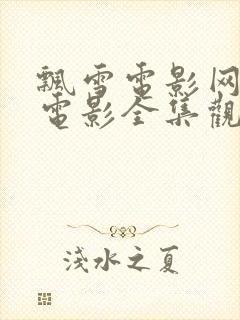 飄雪電影网
電影全集觀
淺水之夏